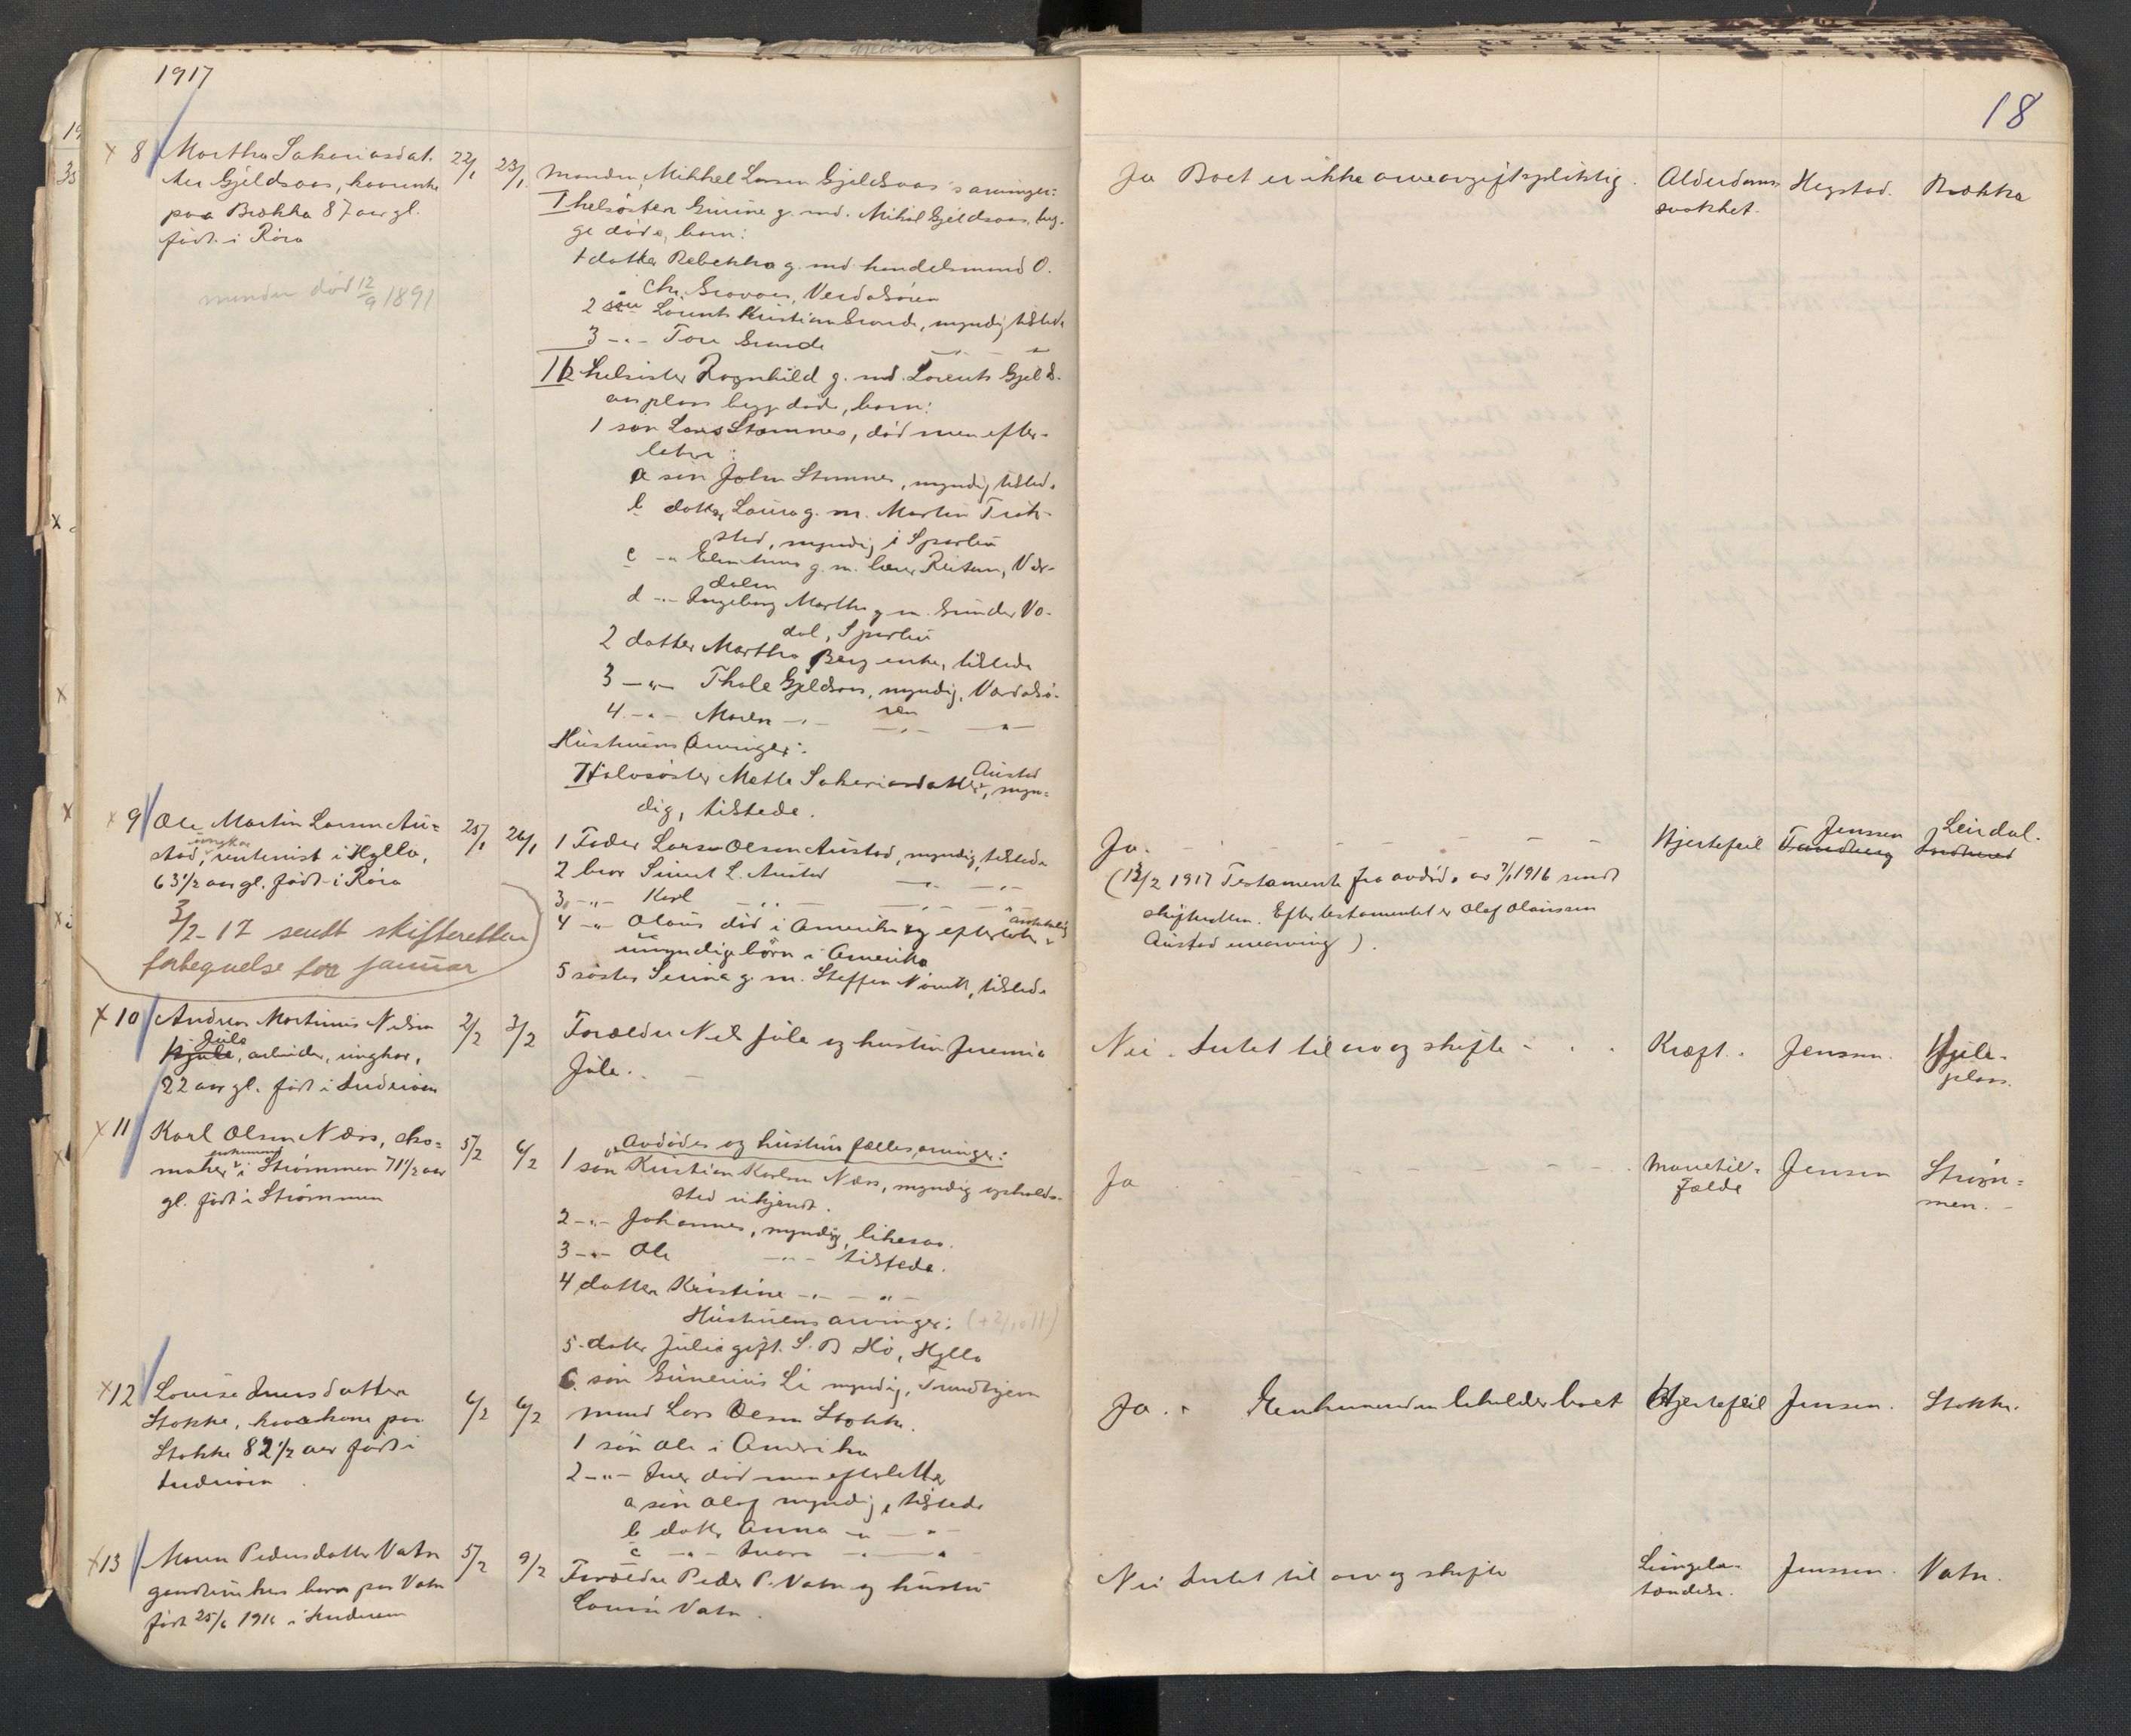 1917
18
8 Martha Sakariasdat-
ter Gjeldsaas, kaarenke
paa Brækka 87 aar gl.
født i Røra
manden død 12/9 1891
22/1
23/1
Manden, Mikkel Larsen Gjeldsaas's arvinger:
I helsøster Gurine g. med. Mikal Gjeldsaas, beg-
ge døde, barn:
1 datter Rebekka g. med handelsmand O.
Chr. Verdalsøren
2 søn Lorents Kristian Grande, myndig, tilstede
3 -"- Tore Grande -"- "
II helsøster Ragnhild g. med. Lorents Gjelds-
aasplass begge døde, barn:
1 søn Lars Stamnes, død men efter-
later:
a søn John Stamnes, myndig tilstede
b datter Laura g. m. Martin
sted, myndig i Sparbu
c -"- g. m. Lars Reitan, Vær-
dalen
d -"- Ingeborg Martha g. m. Gunder Vo-
dal, Sparbu
2 datter Martha Berg enke, tilstede
3 -"- Thale Gjeldsaas, myndig, Verdalsø-
ren
4 -"- Maren -"- -"- "
Hustruens arvinger:
I Halvsøster Mette Sakariasdatter Austad, myn-
dig, tilstede.
Ja Boet er ikke arveavgiftspliktig.
Alderdoms-
svakhet.
Hegstad.
Brækka
9 Ole Martin Larsen Au-
stad, ungkar rentenist i Hylla,
63 1/2 aar gl. født i Røra
3/2-17 sendt skifteretten
fortegnelse for januar
25/1
26/1
1 Fader Lars Olsen Austad, myndig, tilstede
2 bror Simet L. Austad -"- -"-
3 -"- Karl -"- -"- -"-
4 -"- Olaus død i Amerika og efterlater antakelig
umyndige børn i Amerika
5 søster Serina g. m. Steffen tilstede
Ja. - - - - -
(13/2 1917 Testamente fra avdøde av 7/1 1916 sendt
skifteretten. Efter testamentet er Olaf Olaussen
Austad enearving).
Hjertefeil
Jenssen
Tandberg
Leirdal.
10 Andreas Martinius Nilsen
Hjule Jule, arbeider, ungkar,
22 aar gl. født i Inderøen
2/2
3/2
Forældre Nils Jule og hustru Jeremia
Jule.
Nei. Intet til arv og skifte - - -
Kræft.
Jenssen.
Jule-
plass.
11 Karl Olsen Næss, sko-
maker, enkemand i Strømmen 71 1/2 aar
gl. født i Strømmen
5/2
6/2
Avdødes og hustrus fælles arvinger:
1 søn Kristian Karlsen Næss, myndig opholds-
sted ukjendt.
2 -"- Johannes, myndig, likesaa.
3 -"- Ole -"- tilstede.
4 datter Kristine -"- -"-
Hustruens arvinger: (+ 2/10 11)
5 datter Julia gift. S. B Hø, Hylla
6. søn Gunerius Li myndig, Trondhjem
Ja - - - - -
Mavetil-
fælde
Jensen
Strøm-
men.
12 Louise Iversdatter
Stokke, kaarkone paa
Stokke 82 1/2 aar født i
Inderøen
6/2
6/2
Mand Lars Olsen Stokke.
1 søn Ole i Amerika
2 -"- Iver død men efterlatter
a søn Olaf myndig, tilstede
b datter Anna -"- -"-
c -"- Ivara -"- "
Ja. Enkemanden beholder boet
Hjertefeil
Jenssen.
Stokke.
13 Maren Pedersdatter Vatn
gaardbrukers barn paa Vatn
født 25/6 1916 i Inderøen
5/2
9/2
Forældre Peder P. Vatn og hustru
Louise Vatn.
Nei Intet til arv og skifte
Lungebe-
tændelse.
Jenssen.
Vatn.